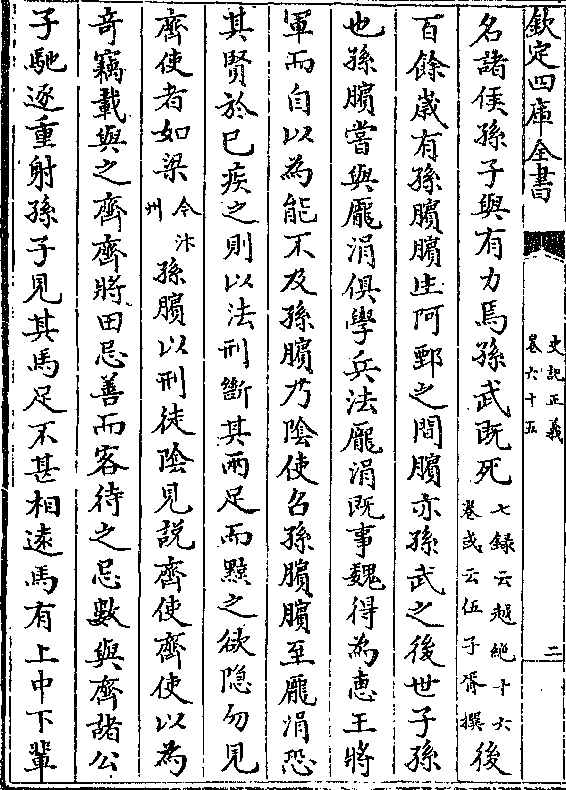 欽定四庫全書
史記正義
卷六十五
二
名諸侯孫子與有力焉孫武既死七錄云越絶十六卷或云伍子胥撰後
百餘嵗有孫臏臏生阿鄄之間臏亦孫武之後世子孫
也孫臏嘗與龐涓俱學兵法龐涓既事魏得為惠王將
軍而自以為能不及孫臏乃陰使召孫臏臏至龐涓恐
其賢於已疾之則以法刑斷其兩足而黥之欲隠勿見
齊使者如梁今汴州孫臏以刑徒陰見説齊使齊使以為
奇竊載與之齊齊將田忌善而客待之忌數與齊諸公
子馳逐重射孫子見其馬足不甚相逺馬有上中下輩